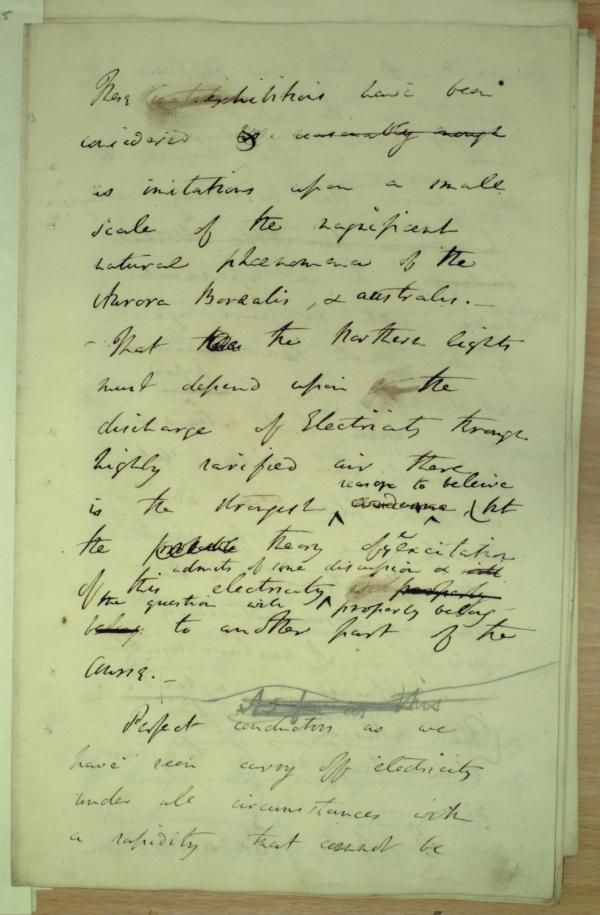 These exhibitions have been
considered as reasonably enough
as imitations upon a small
scale of the magnificent
natural phænomena of the
Aurora Borealis, & australis. —
- That the the Northern lights
must depend upon the
discharge of Electricity through
highly rarified air there
reason to beleive
is the strongest evidence but
the probable theory of ye excitation
admits of some discussion & will
of this electricity properly
the question will properly belong
belong to another part of the
course. —
As far as this
Perfect conductors as we
have seen carry off electricity
under all circumstances with
a rapidity that cannot be